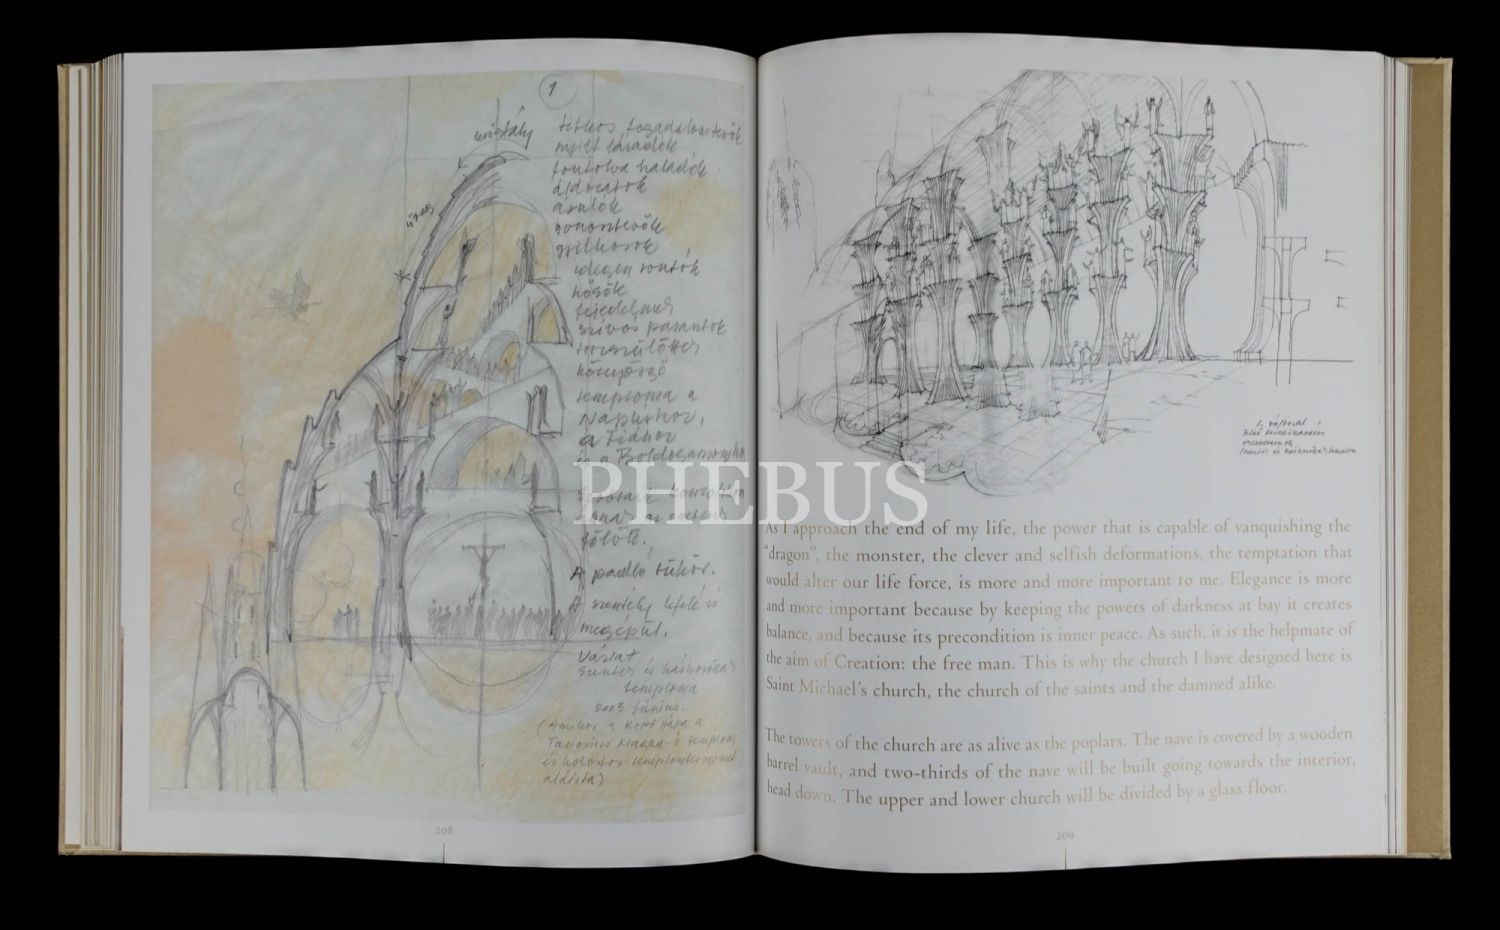 1
kristály
titkos fogadalomtevők
nyílt
fontolva haladók
áldozatok
árulók
gonosztevők
gyilkosok
idegen
hősök
fejedelmek
szívós parasztok
könnyező
temploma a
Napúrhoz,
a Tidhoz
és a Boldogasszony
fölött.
A padló tükör.
A szentély lefelé is
megépül.
Vázlat
Szentek és kárhozottak
temploma
2003 június.
(Amikor a kopt pápa a
templom
és kolostor
áldotta)
208
PHEBUS
As I approach the end of my life, the power that is capable of vanquishing the
"dragon", the monster, the clever and selfish deformations, the temptation that
would alter our life force, is more and more important to me. Elegance is more
and more important because by keeping the powers of darkness at bay it creates
balance, and because its precondition is inner peace. As such, it is the helpmate of
the aim of Creation: the free man. This is why the church I have designed here is
Saint Michael's church, the church of the saints and the damned alike.
The towers of the church are as alive as the poplars. The nave is covered by a wooden
barrel vault, and two-thirds of the nave will be built going towards the interior,
head down. The upper and lower church will be divided by a glass floor.
209